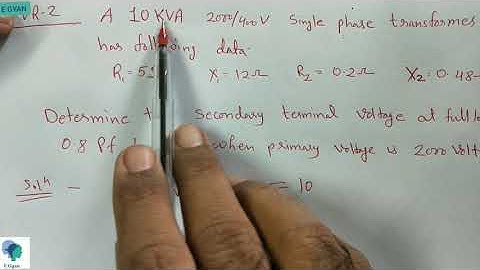 E GYAN
VR-2 A 10 KVA 2000/400V Single phase transformer
has following data
R₁ = 5 X = 12Ω R₂ = 0.2Ω X₂ = 0.48
Determine secondary terminal voltage at full
0.8 Pf when primary voltage is 2000 volt
Solⁿ = 10
E Gyan